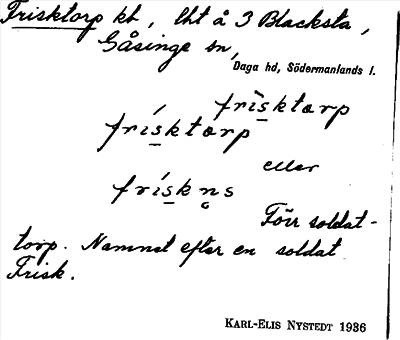 Frisktorp kt, lht å 3 Blacksta,
Gåsinge sn,
Daga hd, Södermanlands l.
frìs̲ktơrp
frís̲ktơrp
eller
frís̲kn̥s
Förr soldat-
torp. Namnet efter en soldat
Frisk.
KARL-ELIS NYSTEDT 1936